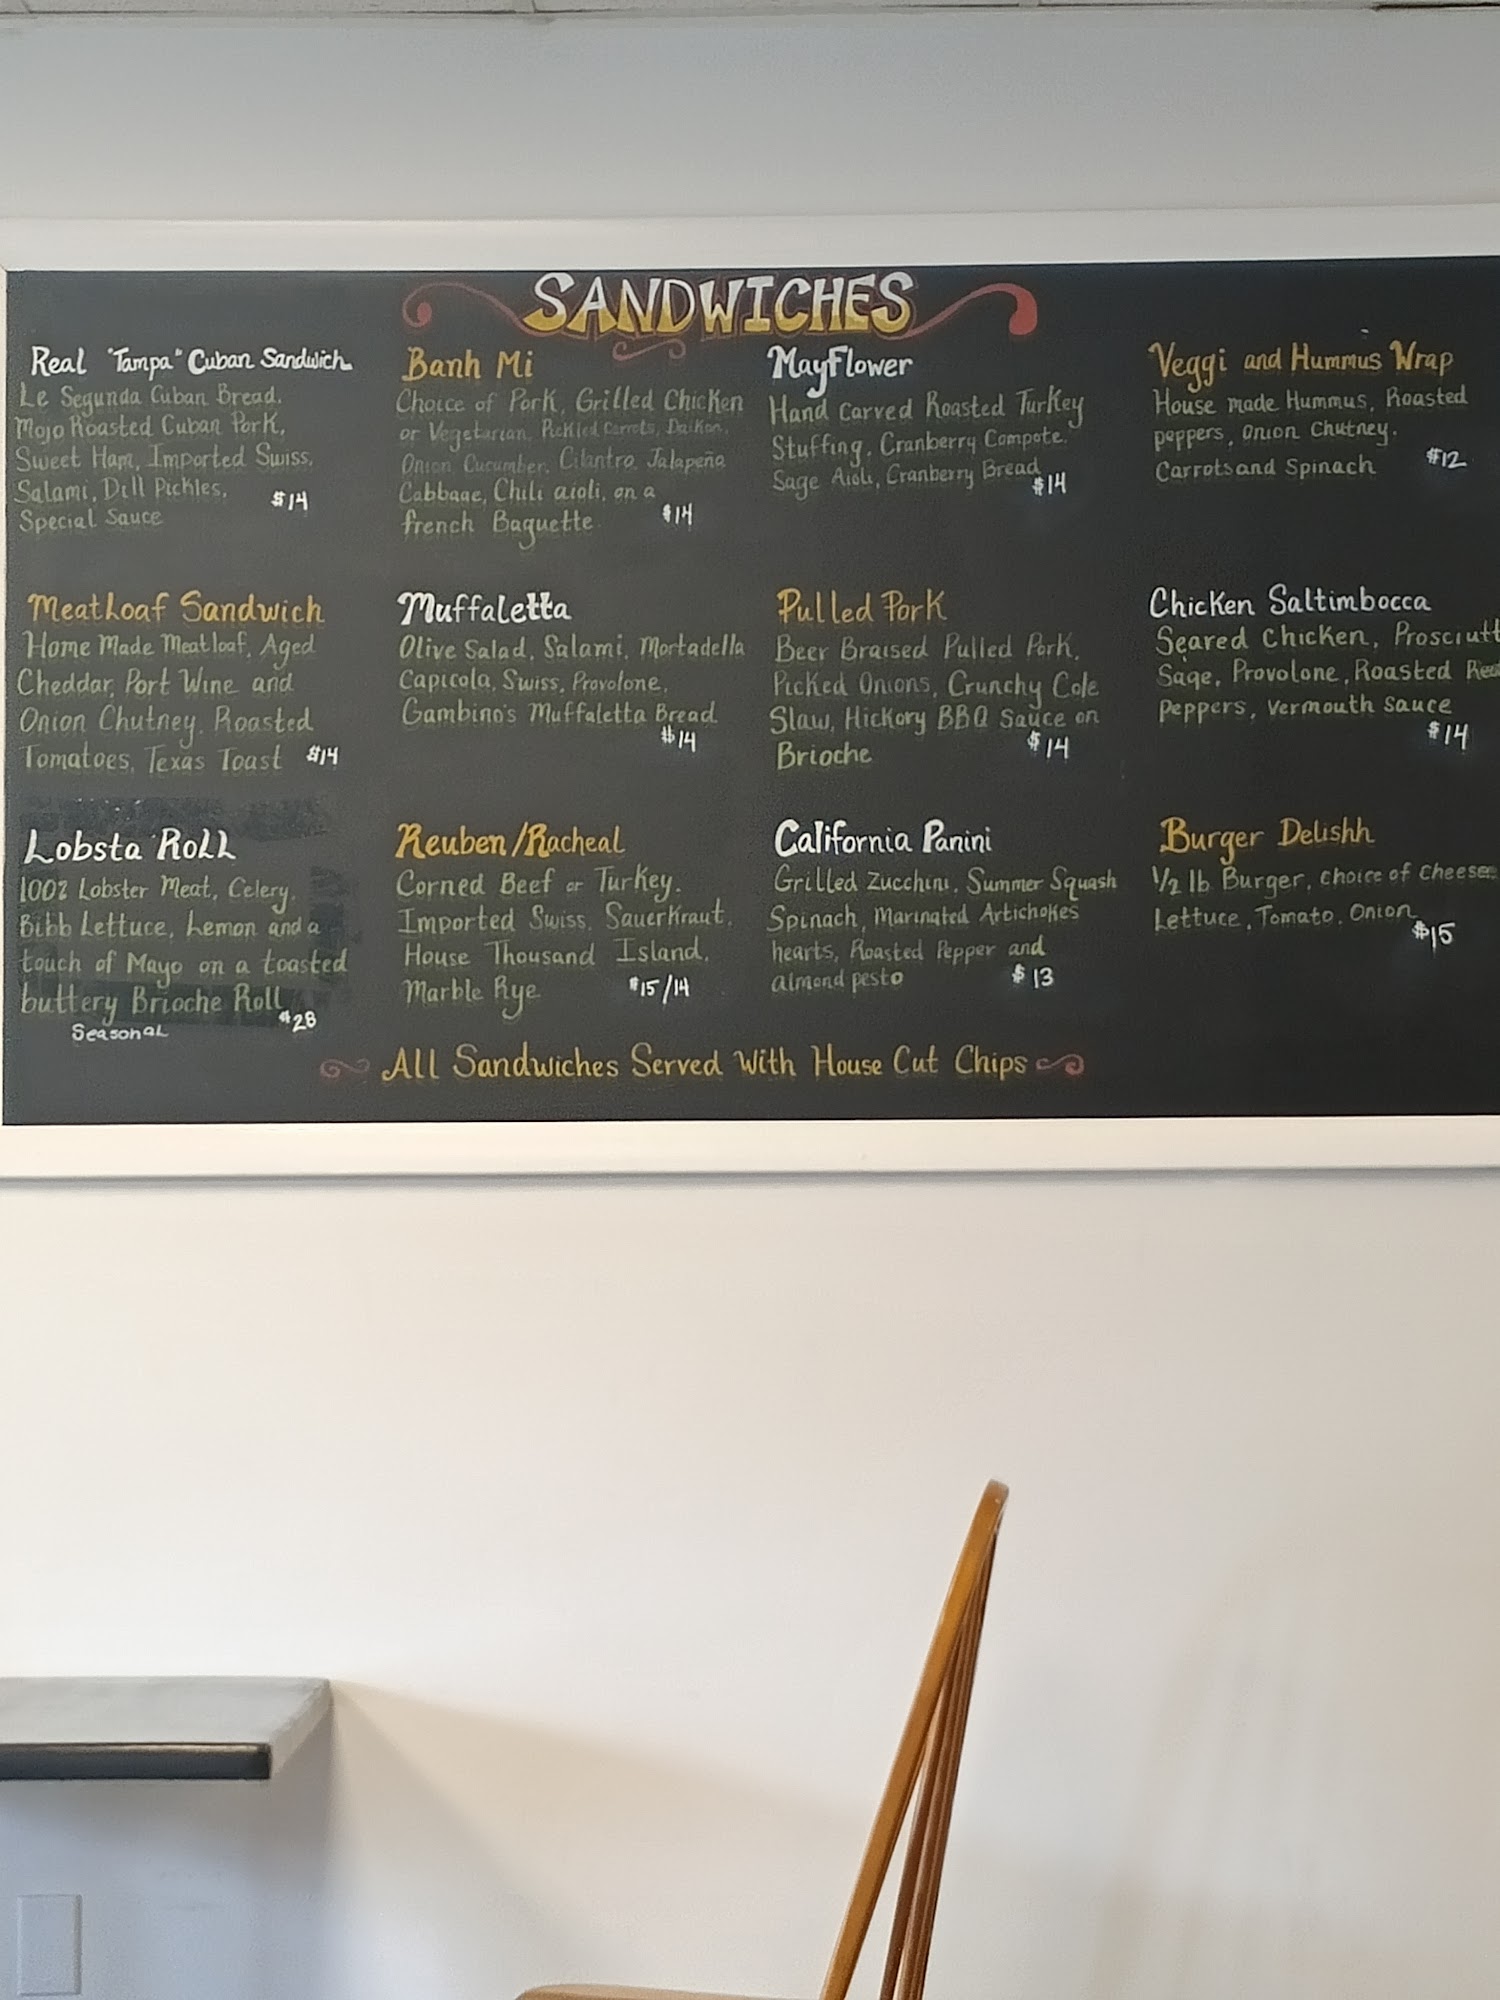 SANDWICHES
Real "Tampa" Cuban Sandwich
Le Segunda Cuban Bread,
Mojo Roasted Cuban Pork,
Sweet Ham, Imported Swiss,
Salami, Dill Pickles,
Special Sauce
$14
Banh Mi
Choice of Pork, Grilled Chicken
or Vegetarian, Pickled Carrots, Daikon,
Onion, Cucumber, Cilantro, Jalapeña
Cabbage, Chili aioli, on a
french Baguette
$14
MayFlower
Hand Carved Roasted Turkey
Stuffing, Cranberry Compote.
Sage Aioli, Cranberry Bread
$14
Veggi and Hummus Wrap
House made Hummus, Roasted
peppers, onion Chutney.
Carrots and Spinach
$12
Meatloaf Sandwich
Home Made Meatloaf, Aged
Cheddar, Port Wine and
Onion Chutney, Roasted
Tomatoes, Texas Toast $14
Muffaletta
Olive Salad, Salami, Mortadella
Capicola, Swiss, Provolone,
Gambino's Muffaletta Bread
$14
Pulled Pork
Beer Braised Pulled Pork,
Picked Onions, Crunchy Cole
Slaw, Hickory BBQ Sauce on
Brioche $14
Chicken Saltimbocca
Seared Chicken, Prosciutt
Sage, Provolone, Roasted Red
peppers, vermouth sauce
$14
Lobsta Roll
100% Lobster Meat, Celery,
Bibb Lettuce, Lemon and a
touch of Mayo on a toasted
buttery Brioche Roll
$28
Seasonal
Reuben/Racheal
Corned Beef or Turkey.
Imported Swiss, Sauerkraut,
House Thousand Island,
Marble Rye $15/14
California Panini
Grilled Zucchini, Summer Squash
Spinach, Marinated Artichokes
hearts, Roasted Pepper and
almond pesto $13
Burger Delishh
1/2 lb Burger, choice of Cheese
Lettuce, Tomato, Onion
$15
All Sandwiches Served With House Cut Chips